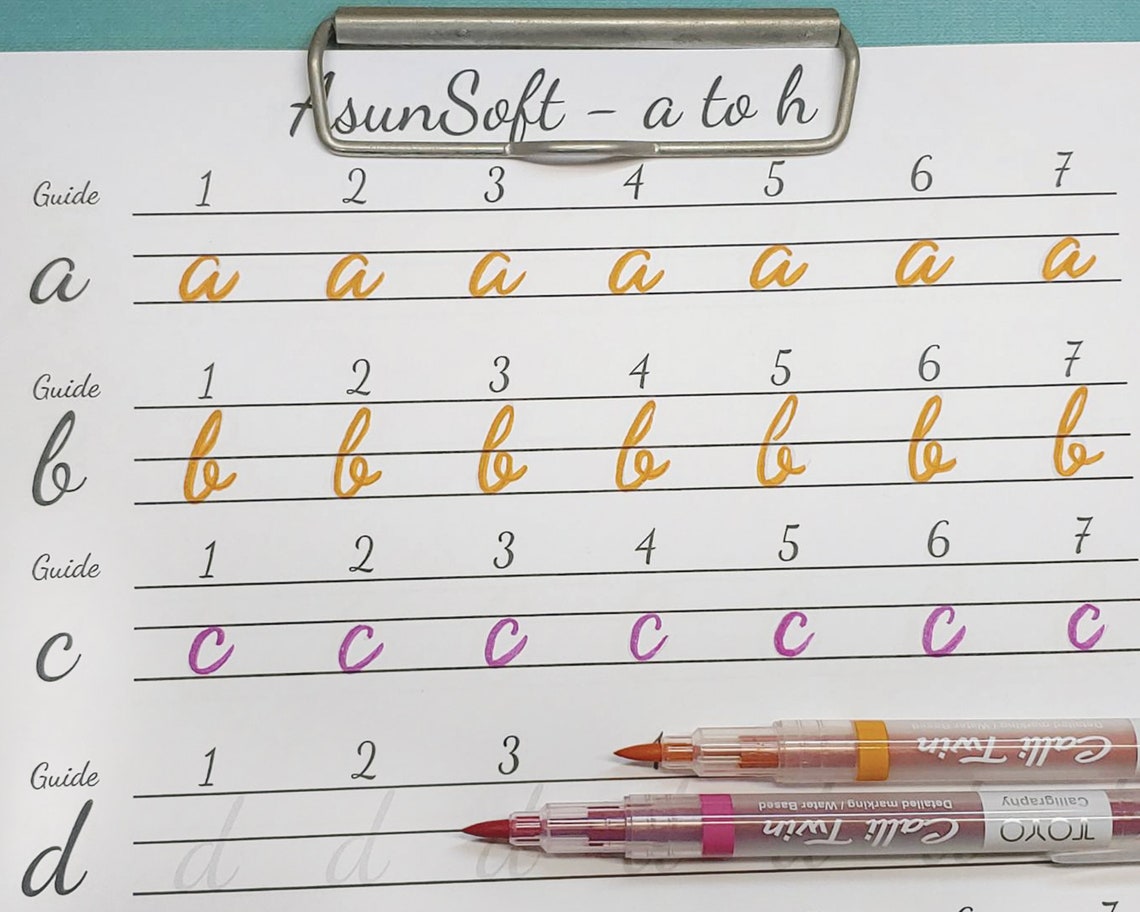 AsunSoft - a to h
Guide 1 2 3 4 5 6 7
a a a a a a a a
Guide 1 2 3 4 5 6 7
b b b b b b b b
Guide 1 2 3 4 5 6 7
c c c c c c c c
Guide 1 2 3
d d d d d d d
Calli Twin
Detailed marking / Water Based
TOYO Calligraphy Calli Twin Detailed marking / Water Based
6 7